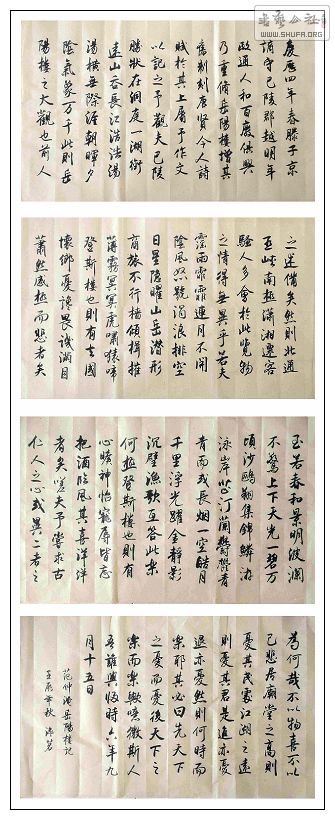 WWW.SHUFA.ORG
慶曆四年春滕子京
謫守巴陵郡越明年
政通人和百廢俱興
乃重修岳陽樓增其
舊制刻唐賢今人詩
賦於其上屬予作文
以記之予觀夫巴陵
勝狀在洞庭一湖銜
遠山吞長江浩浩湯
湯橫無際涯朝暉夕
陰氣象万千此則岳
陽樓之大觀也前人
之述備矣然則北通
巫峽南極瀟湘遷客
騷人多會於此覽物
之情得無異乎若夫
霪雨霏霏連月不開
陰風怒號濁浪排空
日星隱曜山岳潛形
商旅不行檣傾楫摧
薄霧冥冥虎嘯猿啼
登斯樓也則有去國
懷鄉憂讒畏譏滿目
蕭然感極而悲者矣
至若春和景明波瀾
不驚上下天光一碧万
頃沙鷗翔集錦鱗游
泳岸芷汀蘭鬱鬱青
青而或長烟一空皓月
千里浮光躍金静影
沉璧漁歌互答此樂
何極登斯樓也則有
心曠神怡寵辱皆忘
把酒臨風其喜洋洋
者矣嗟夫予嘗求古
仁人之心或異二者之
為何哉不以物喜不以
己悲居廟堂之高則
憂其民處江湖之遠
則憂其君是進亦憂
退亦憂然則何時而
樂耶其必曰先天下
之憂而憂後天下之
樂而樂歟噫微斯人
吾誰與歸時六年九
月十五日
范仲淹岳陽樓記
壬辰年秋